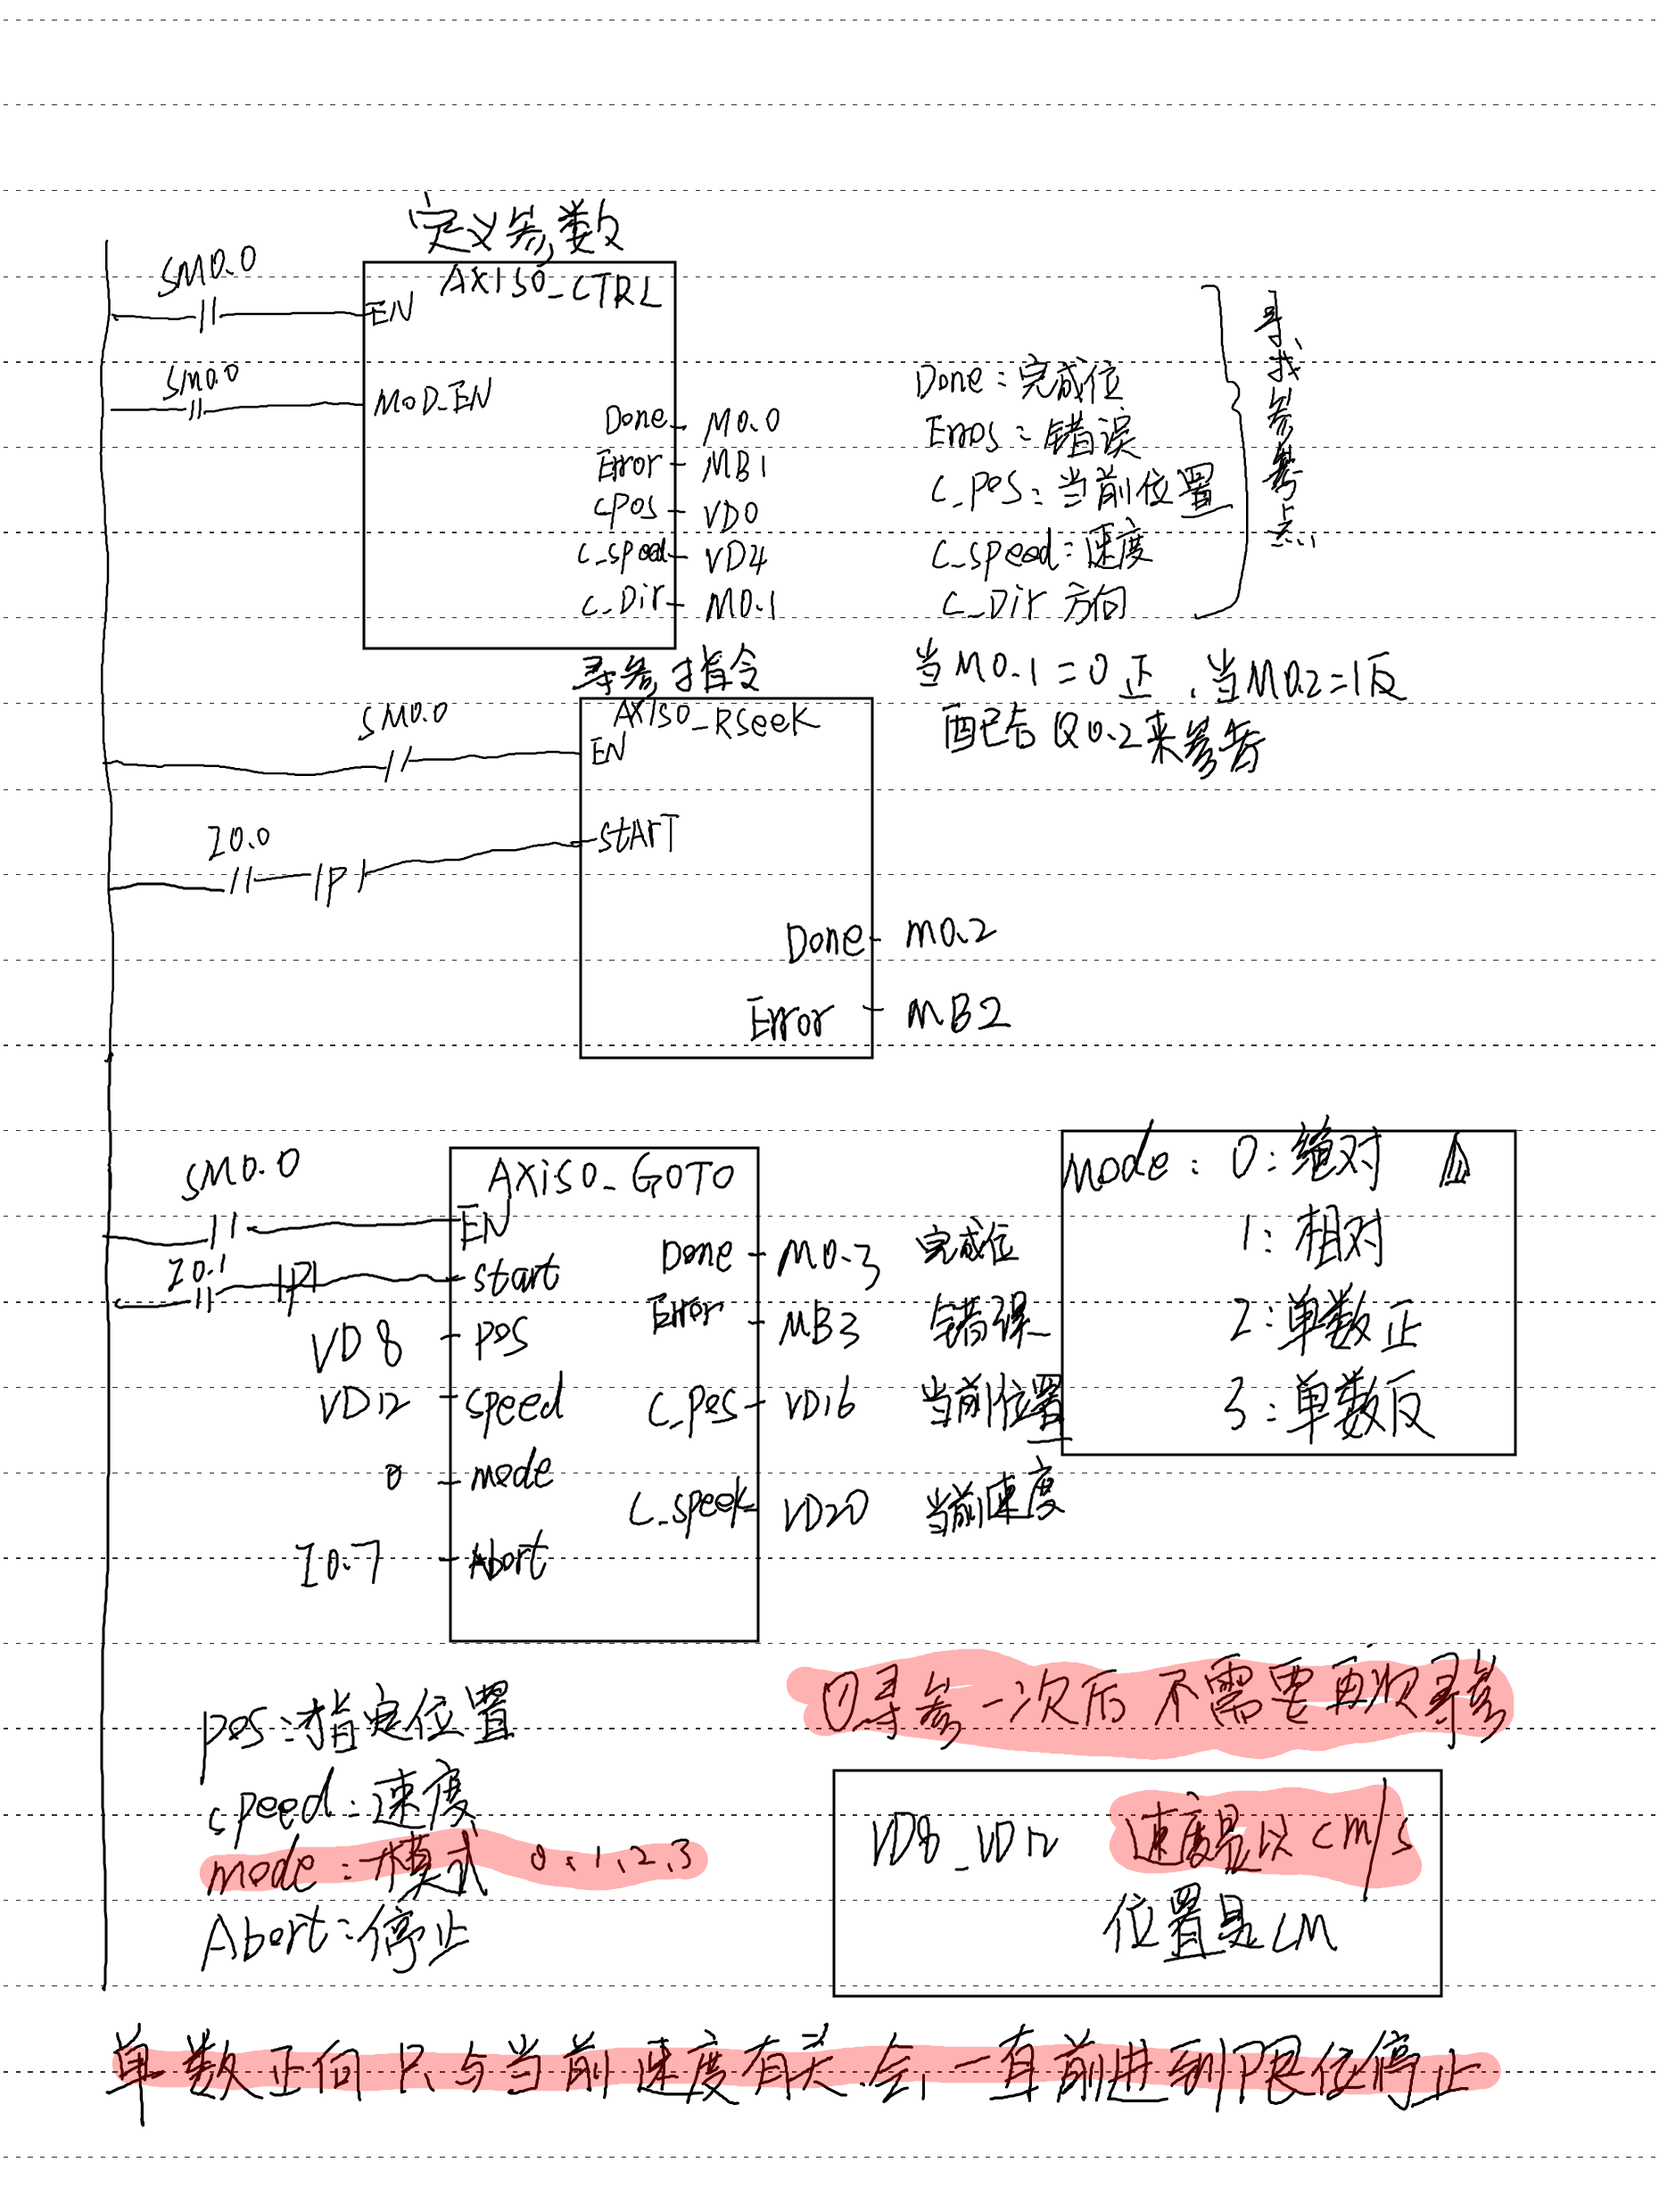 定义参数
SM0.0
AXIS0_CTRL
EN
SM0.0
MOD_EN
Done M0.0
Error MB1
CPOS VD0
C_speed VD4
C_Dir M0.1
Done:完成位
Erros:错误
C_Pos:当前位置
C_speed:速度
C_Dir 方向
寻找参考点
当M0.1=0正、当M0.2=1反
配已后Q0.2来参考
寻参指令
SM0.0
AXIS0_RSeeK
EN
I0.0
P
StArT
Done M0.2
Error MB2
SM0.0
AXiS0_GOTO
EN
I0.1
P
start
VD8 Pos
VD12 speed
0 mode
I0.7 Abort
Done M0.3 完成位
Error MB3 错误
C_Pos VD16 当前位置
C_speek VD20 当前速度
Mode:0:绝对
1:相对
2:单数正
3:单数反
Pos:指定位置
speed:速度
mode:模式 0、1、2、3
Abort:停止
①寻参一次后不需要再次寻参
VD8_VD12 速度是以cm/s
位置是CM
单数正向只与当前速度有关.会,一直前进到限位停止